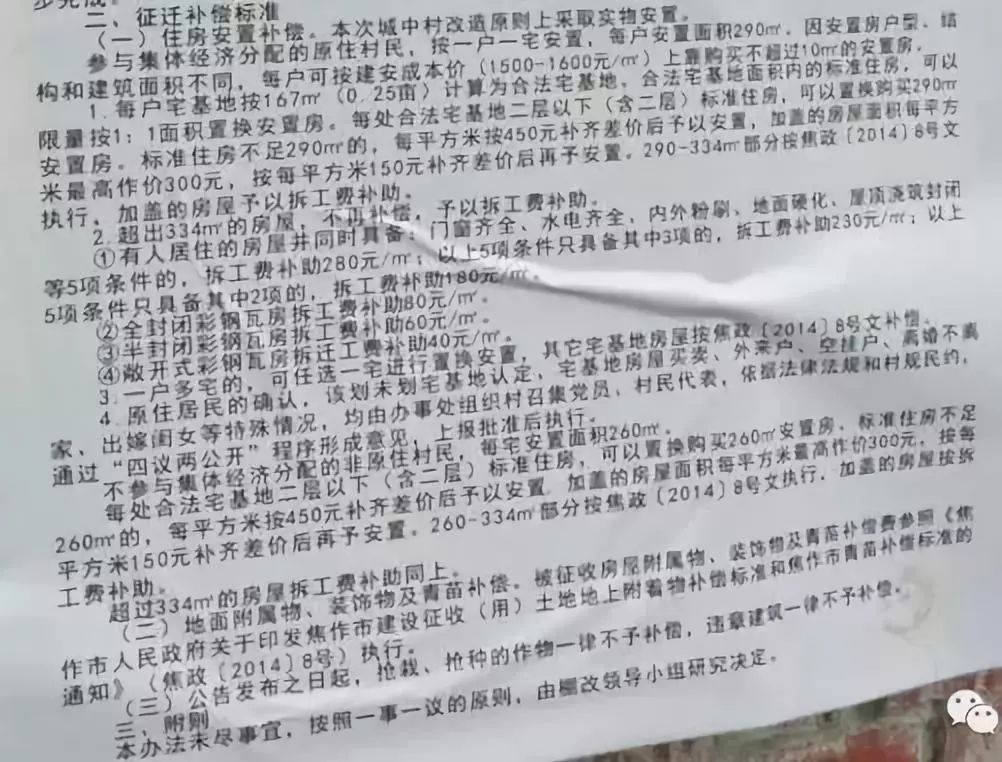 步完成。
二、征迁补偿标准
（一）住房安置补偿。本次城中村改造原则上采取实物安置。
参与集体经济分配的原住村民，按一户一宅安置，每户安置面积290㎡，因安置房户型、结
构和建筑面积不同，每户可按建安成本价（1500-1600元/㎡）上靠购买不超过10㎡的安置房。
1.每户宅基地按167㎡（0.25亩）计算为合法宅基地，合法宅基地面积内的标准住房，可以
限量按1：1面积置换安置房。每处合法宅基地二层以下（含二层）标准住房，可以置换购买290㎡
安置房。标准住房不足290㎡的，每平方米按450元补齐差价后予以安置，加盖的房屋面积每平方
米最高作价300元，按每平方米150元补齐差价后再予安置。290-334㎡部分按焦政［2014］8号文
执行，加盖的房屋予以拆工费补助。
2.超出334㎡的房屋，不再补偿，予以拆工费补助。
①有人居住的房屋并同时具备：门窗齐全、水电齐全、内外粉刷、地面硬化、屋顶浇筑封闭
等5项条件的，拆工费补助280元/㎡；以上5项条件只具备其中3项的，拆工费补助230元/㎡；以上
5项条件只具备其中2项的，拆工费补助180元/㎡。
②全封闭彩钢瓦房拆工费补助80元/㎡。
③半封闭彩钢瓦房拆工费补助60元/㎡。
④敞开式彩钢瓦房拆迁工费补助40元/㎡。
3.一户多宅的，可任选一宅进行置换安置，其它宅基地房屋按焦政［2014］8号文补偿。
4.原住居民的确认，该划未划宅基地认定，宅基地房屋买卖、外来户、空挂户、离婚不离
家、出嫁闺女等特殊情况，均由办事处组织村召集党员，村民代表，依据法律法规和村规民约，
通过“四议两公开”程序形成意见，上报批准后执行。
不参与集体经济分配的非原住村民，每宅安置面积260㎡。
每处合法宅基地二层以下（含二层）标准住房，可以置换购买260㎡安置房，标准住房不足
260㎡的，每平方米按450元补齐差价后予以安置，加盖的房屋面积每平方米最高作价300元，按每
平方米150元补齐差价后再予安置。260-334㎡部分按焦政［2014］8号文执行，加盖的房屋按拆
工费补助。
超过334㎡的房屋拆工费补助同上。
（二）地面附属物、装饰物及青苗补偿。被征收房屋附属物、装饰物及青苗补偿费参照《焦
作市人民政府关于印发焦作市建设征收（用）土地地上附着物补偿标准和焦作市青苗补偿标准的
通知》（焦政［2014］8号）执行。
（三）公告发布之日起，抢栽、抢种的作物一律不予补偿，违章建筑一律不予补偿。
三、附则
本办法未尽事宜，按照一事一议的原则，由棚改领导小组研究决定。